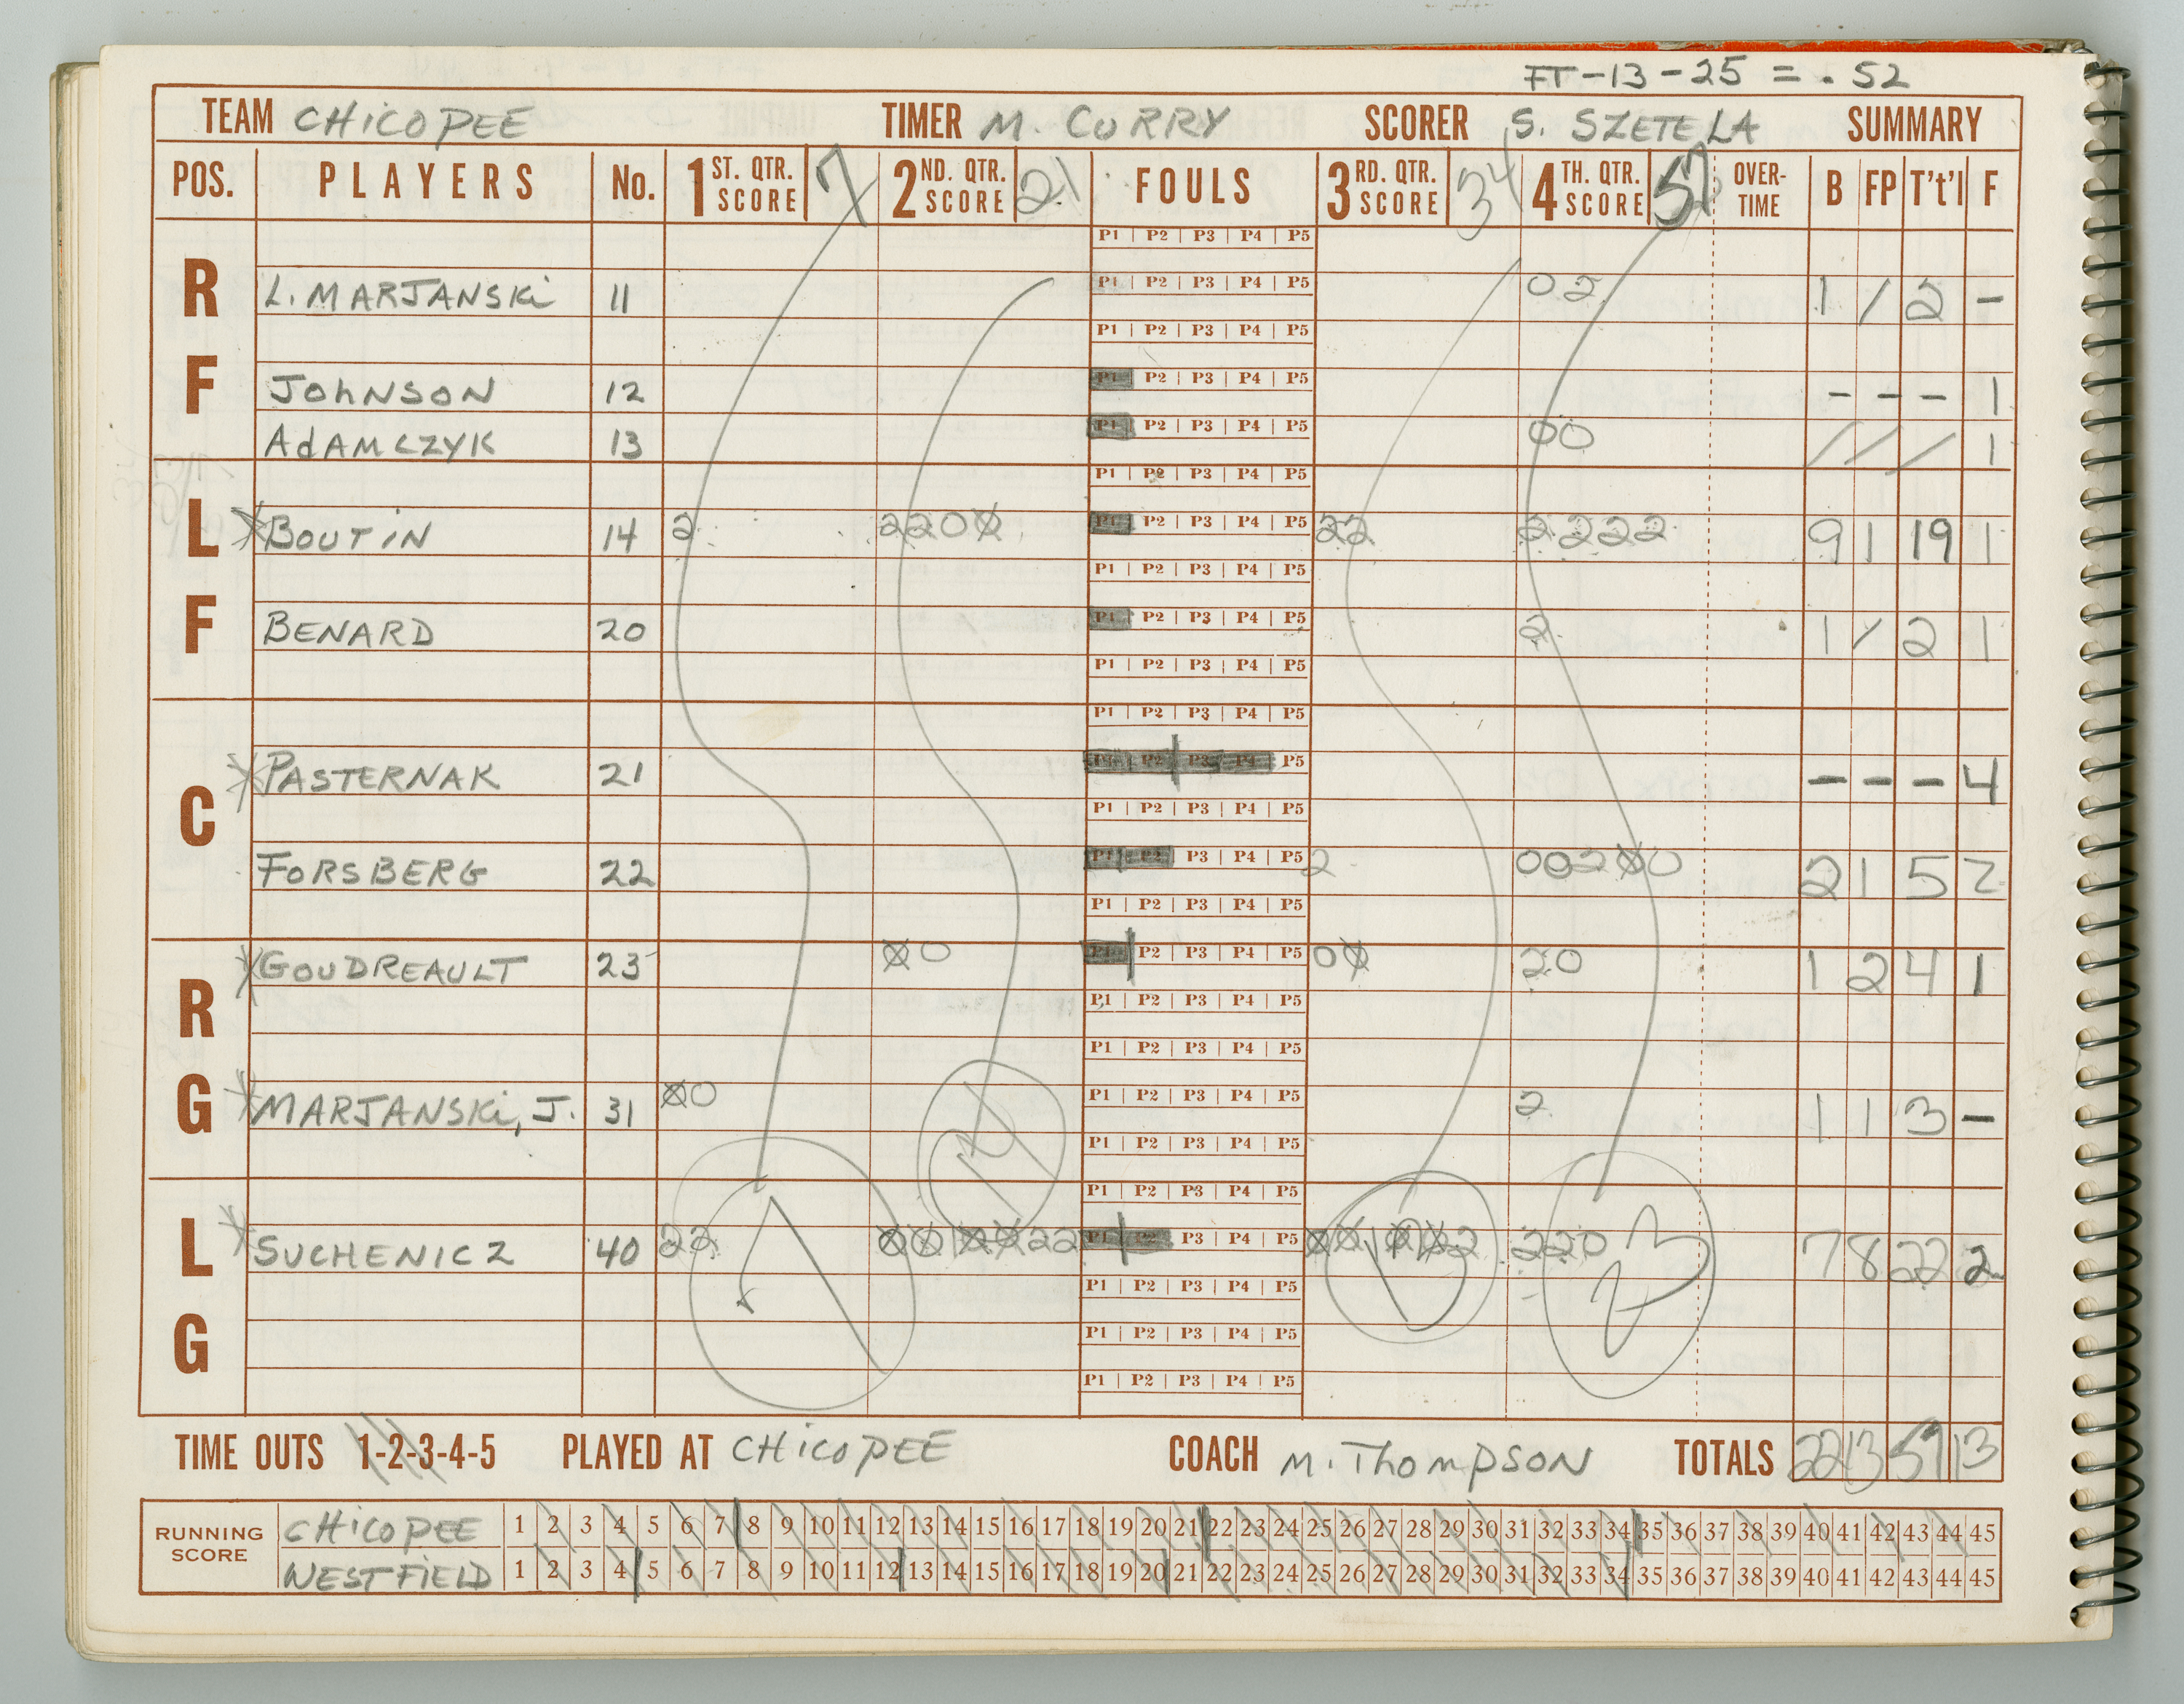 FT-13-25 = .52
TEAM CHICOPEE TIMER M. CURRY SCORER S. SZETELA SUMMARY
POS. PLAYERS No. 1 ST. QTR. SCORE 7 2 ND. QTR. SCORE 21 FOULS 3 RD. QTR. SCORE 34 4 TH. QTR. SCORE 57 OVER-TIME B FP T't'l F
P1 P2 P3 P4 P5
RF L. MARJANSKi 11 P1 P2 P3 P4 P5 02 1 / 2 -
P1 P2 P3 P4 P5
JOHNSON 12 P1 P2 P3 P4 P5 - - - 1
ADAMCZYK 13 P1 P2 P3 P4 P5 00 / / / 1
P1 P2 P3 P4 P5
LF BOUTIN 14 2 2200 P1 P2 P3 P4 P5 22 2222 9 1 19 1
P1 P2 P3 P4 P5
BENARD 20 P1 P2 P3 P4 P5 2 1 / 2 1
P1 P2 P3 P4 P5
P1 P2 P3 P4 P5
C PASTERNAK 21 P1 P2 P3 P4 P5 - - - 4
P1 P2 P3 P4 P5
FORSBERG 22 P1 P2 P3 P4 P5 2 00200 2 1 5 2
P1 P2 P3 P4 P5
RG GOUDREAULT 23 00 P1 P2 P3 P4 P5 00 20 1 2 4 1
P1 P2 P3 P4 P5
P1 P2 P3 P4 P5
MARJANSKi, J. 31 00 P1 P2 P3 P4 P5 2 1 1 3 -
P1 P2 P3 P4 P5
7 14 13 23
P1 P2 P3 P4 P5
LG SUCHENICZ 40 22 000022 P1 P2 P3 P4 P5 00002 220 7 8 22 2
P1 P2 P3 P4 P5
P1 P2 P3 P4 P5
P1 P2 P3 P4 P5
TIME OUTS 1-2-3-4-5 PLAYED AT CHICOPEE COACH M. THOMPSON TOTALS 22 13 57 13
RUNNING SCORE
CHICOPEE 1 2 3 4 5 6 7 8 9 10 11 12 13 14 15 16 17 18 19 20 21 22 23 24 25 26 27 28 29 30 31 32 33 34 35 36 37 38 39 40 41 42 43 44 45
WESTFIELD 1 2 3 4 5 6 7 8 9 10 11 12 13 14 15 16 17 18 19 20 21 22 23 24 25 26 27 28 29 30 31 32 33 34 35 36 37 38 39 40 41 42 43 44 45